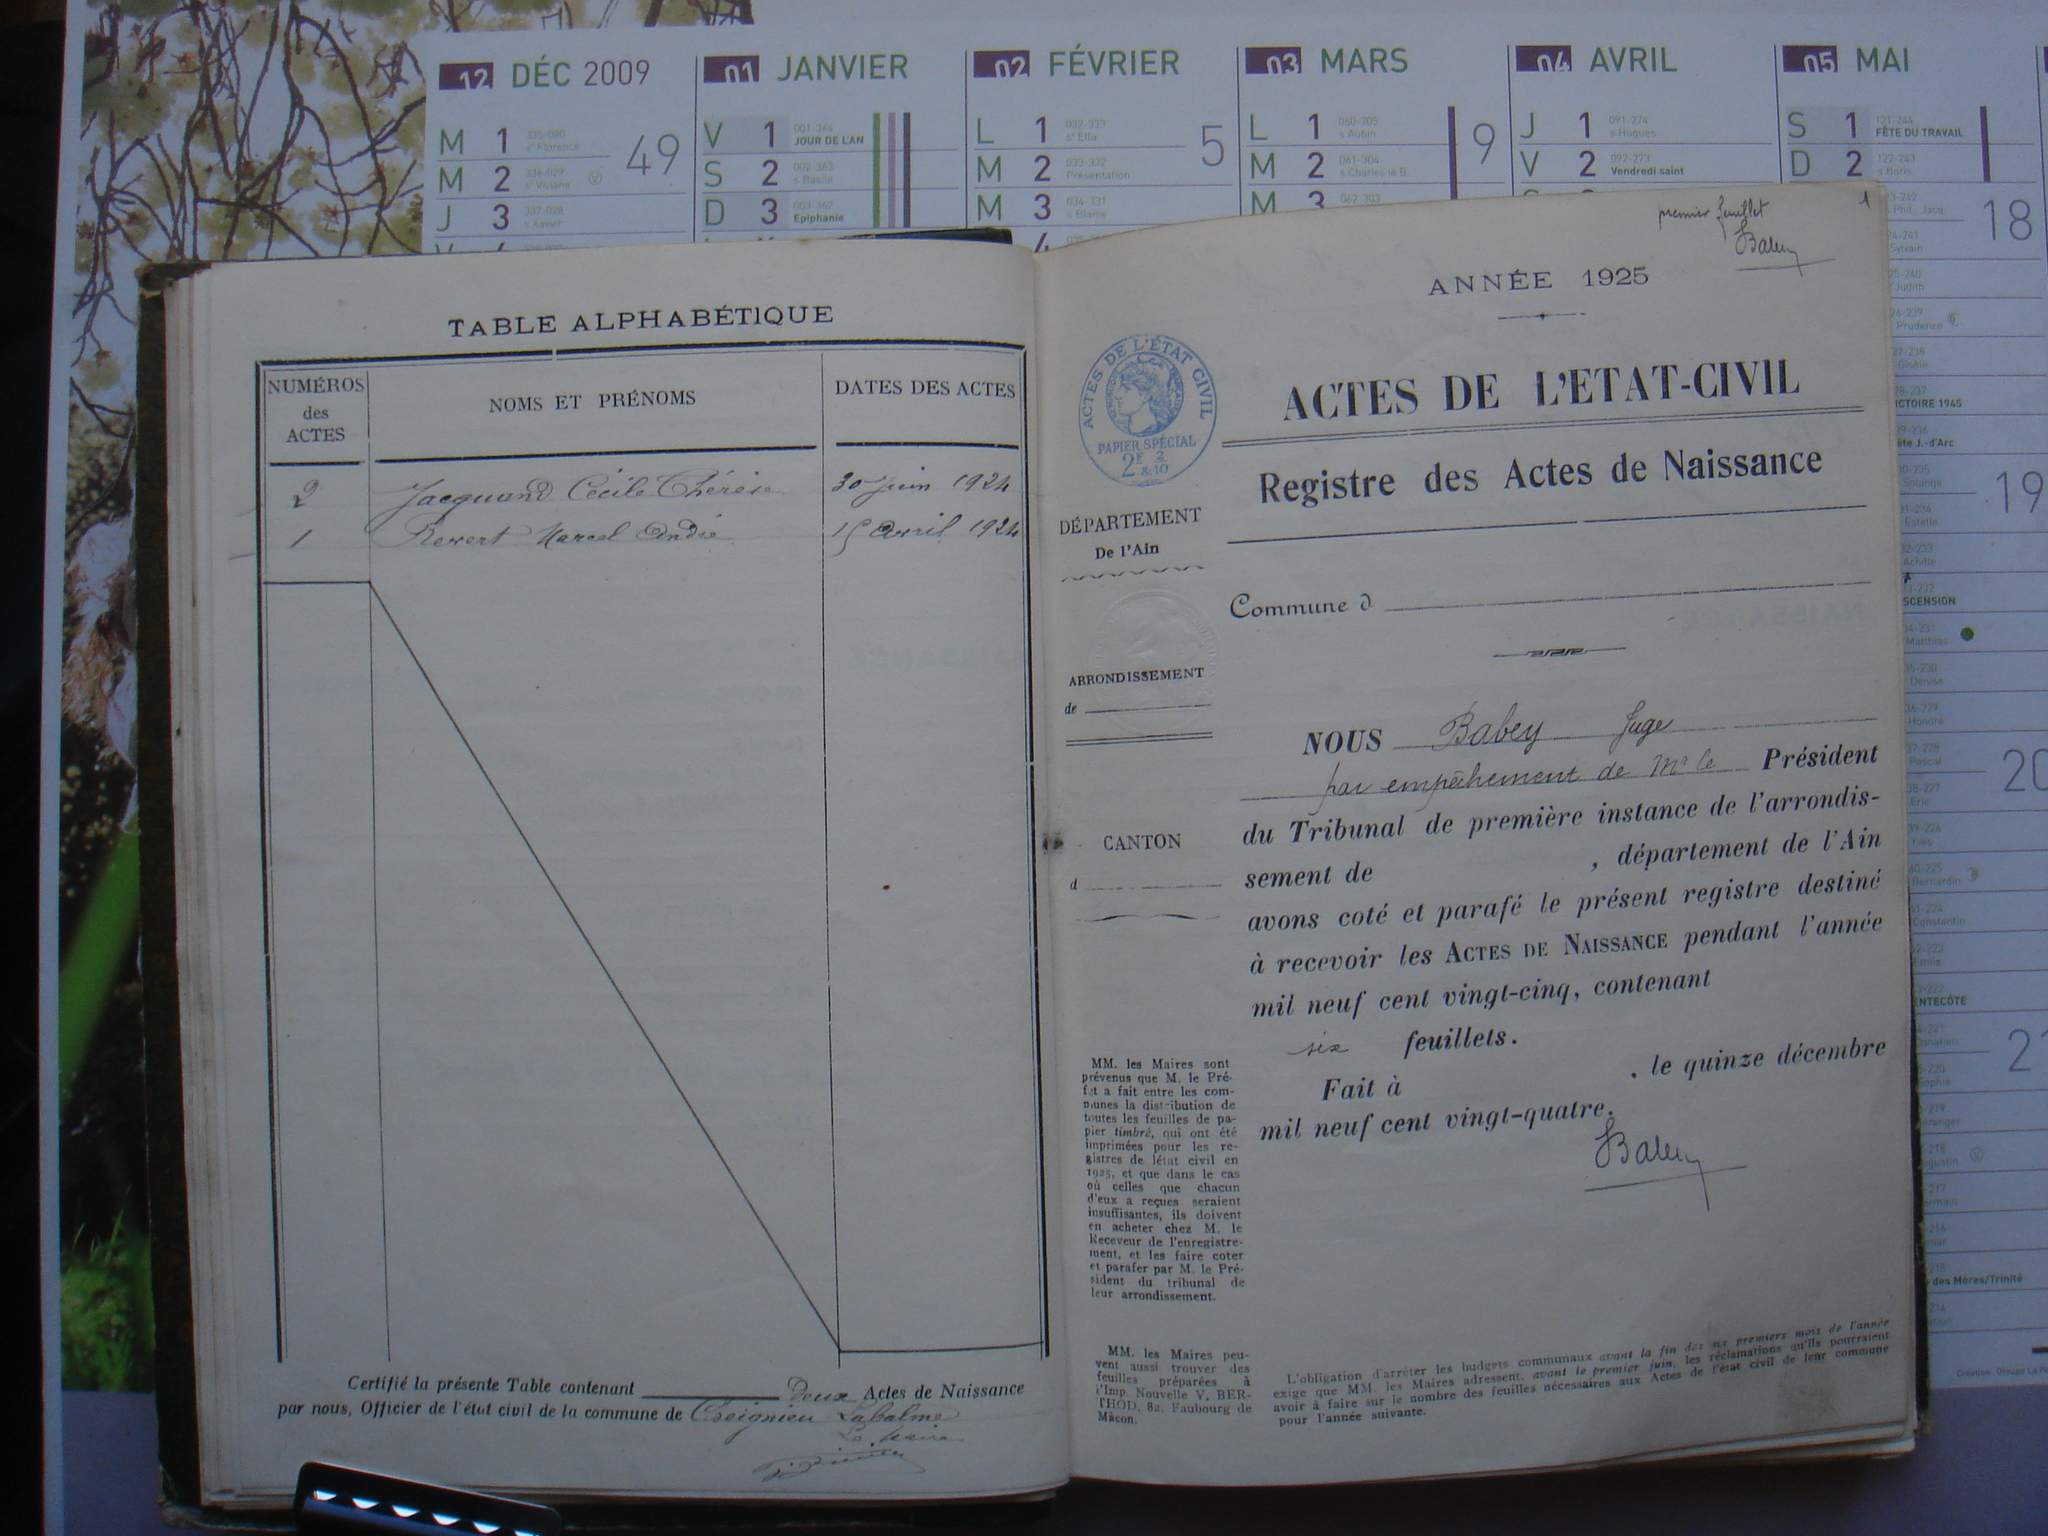 12 DÉC 2009
01 JANVIER
02 FÉVRIER
03 MARS
04 AVRIL
05 MAI
M 1 49
M 2
J 3
V 1 JOUR DE L'AN
S 2
D 3 Epiphanie
L 1 032-333 s° Ella 5
M 2 033-332 Présentation
M 3 034-331 s Blaise
4
L 1 060-305 s Aubin 9
M 2 061-304 s Charles le B.
M 3 062-303
J 1 091-274 s Hugues
V 2 092-273 Vendredi saint
S 1 121-244 FÊTE DU TRAVAIL
D 2 122-243 s Boris
18
19
20
21
TABLE ALPHABÉTIQUE
NUMÉROS des ACTES
NOMS ET PRÉNOMS
DATES DES ACTES
2 Jacquand Cécile Thérèse 30 juin 1924
1 Revert Marcel André 15 Avril 1924
Certifié la présente Table contenant Deux Actes de Naissance
par nous, Officier de l'état civil de la commune de Cheignieu Labalme
Le Maire
premier feuillet
1
Babey
ANNÉE 1925
ACTES DE L'ÉTAT CIVIL
PAPIER SPÉCIAL
2F 2 &10
ACTES DE L'ETAT-CIVIL
Registre des Actes de Naissance
DÉPARTEMENT
De l'Ain
Commune d
ARRONDISSEMENT
de
CANTON
d
NOUS Babey Juge
par empêchement de Mr le Président
du Tribunal de première instance de l'arrondis-
sement de , département de l'Ain
avons coté et parafé le présent registre destiné
à recevoir les ACTES DE NAISSANCE pendant l'année
mil neuf cent vingt-cinq, contenant
six feuillets.
Fait à , le quinze décembre
mil neuf cent vingt-quatre.
Babey
MM. les Maires sont
prévenus que M. le Pré-
fet a fait entre les com-
munes la distribution de
toutes les feuilles de pa-
pier timbré, qui ont été
imprimées pour les re-
gistres de létat civil en
1925, et que dans le cas
où celles que chacun
d'eux a reçues seraient
insuffisantes, ils doivent
en acheter chez M. le
Receveur de l'enregistre-
ment, et les faire coter
et parafer par M. le Pré-
sident du tribunal de
leur arrondissement.
MM. les Maires peu-
vent aussi trouver des
feuilles préparées à
l'Imp. Nouvelle V, BER-
THOD, 82, Faubourg de
Mâcon.
L'obligation d'arrêter les budgets communaux avant la fin des six premiers mois de l'année
exige que MM. les Maires adressent, avant le premier juin, les réclamations qu'ils pourraient
avoir à faire sur le nombre des feuilles nécessaires aux Actes de l'état civil de leur commune
pour l'année suivante.